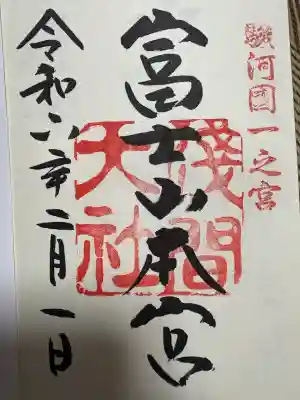 駿河國一之宮
富士山本宮
浅間
大社
令和六年二月一日